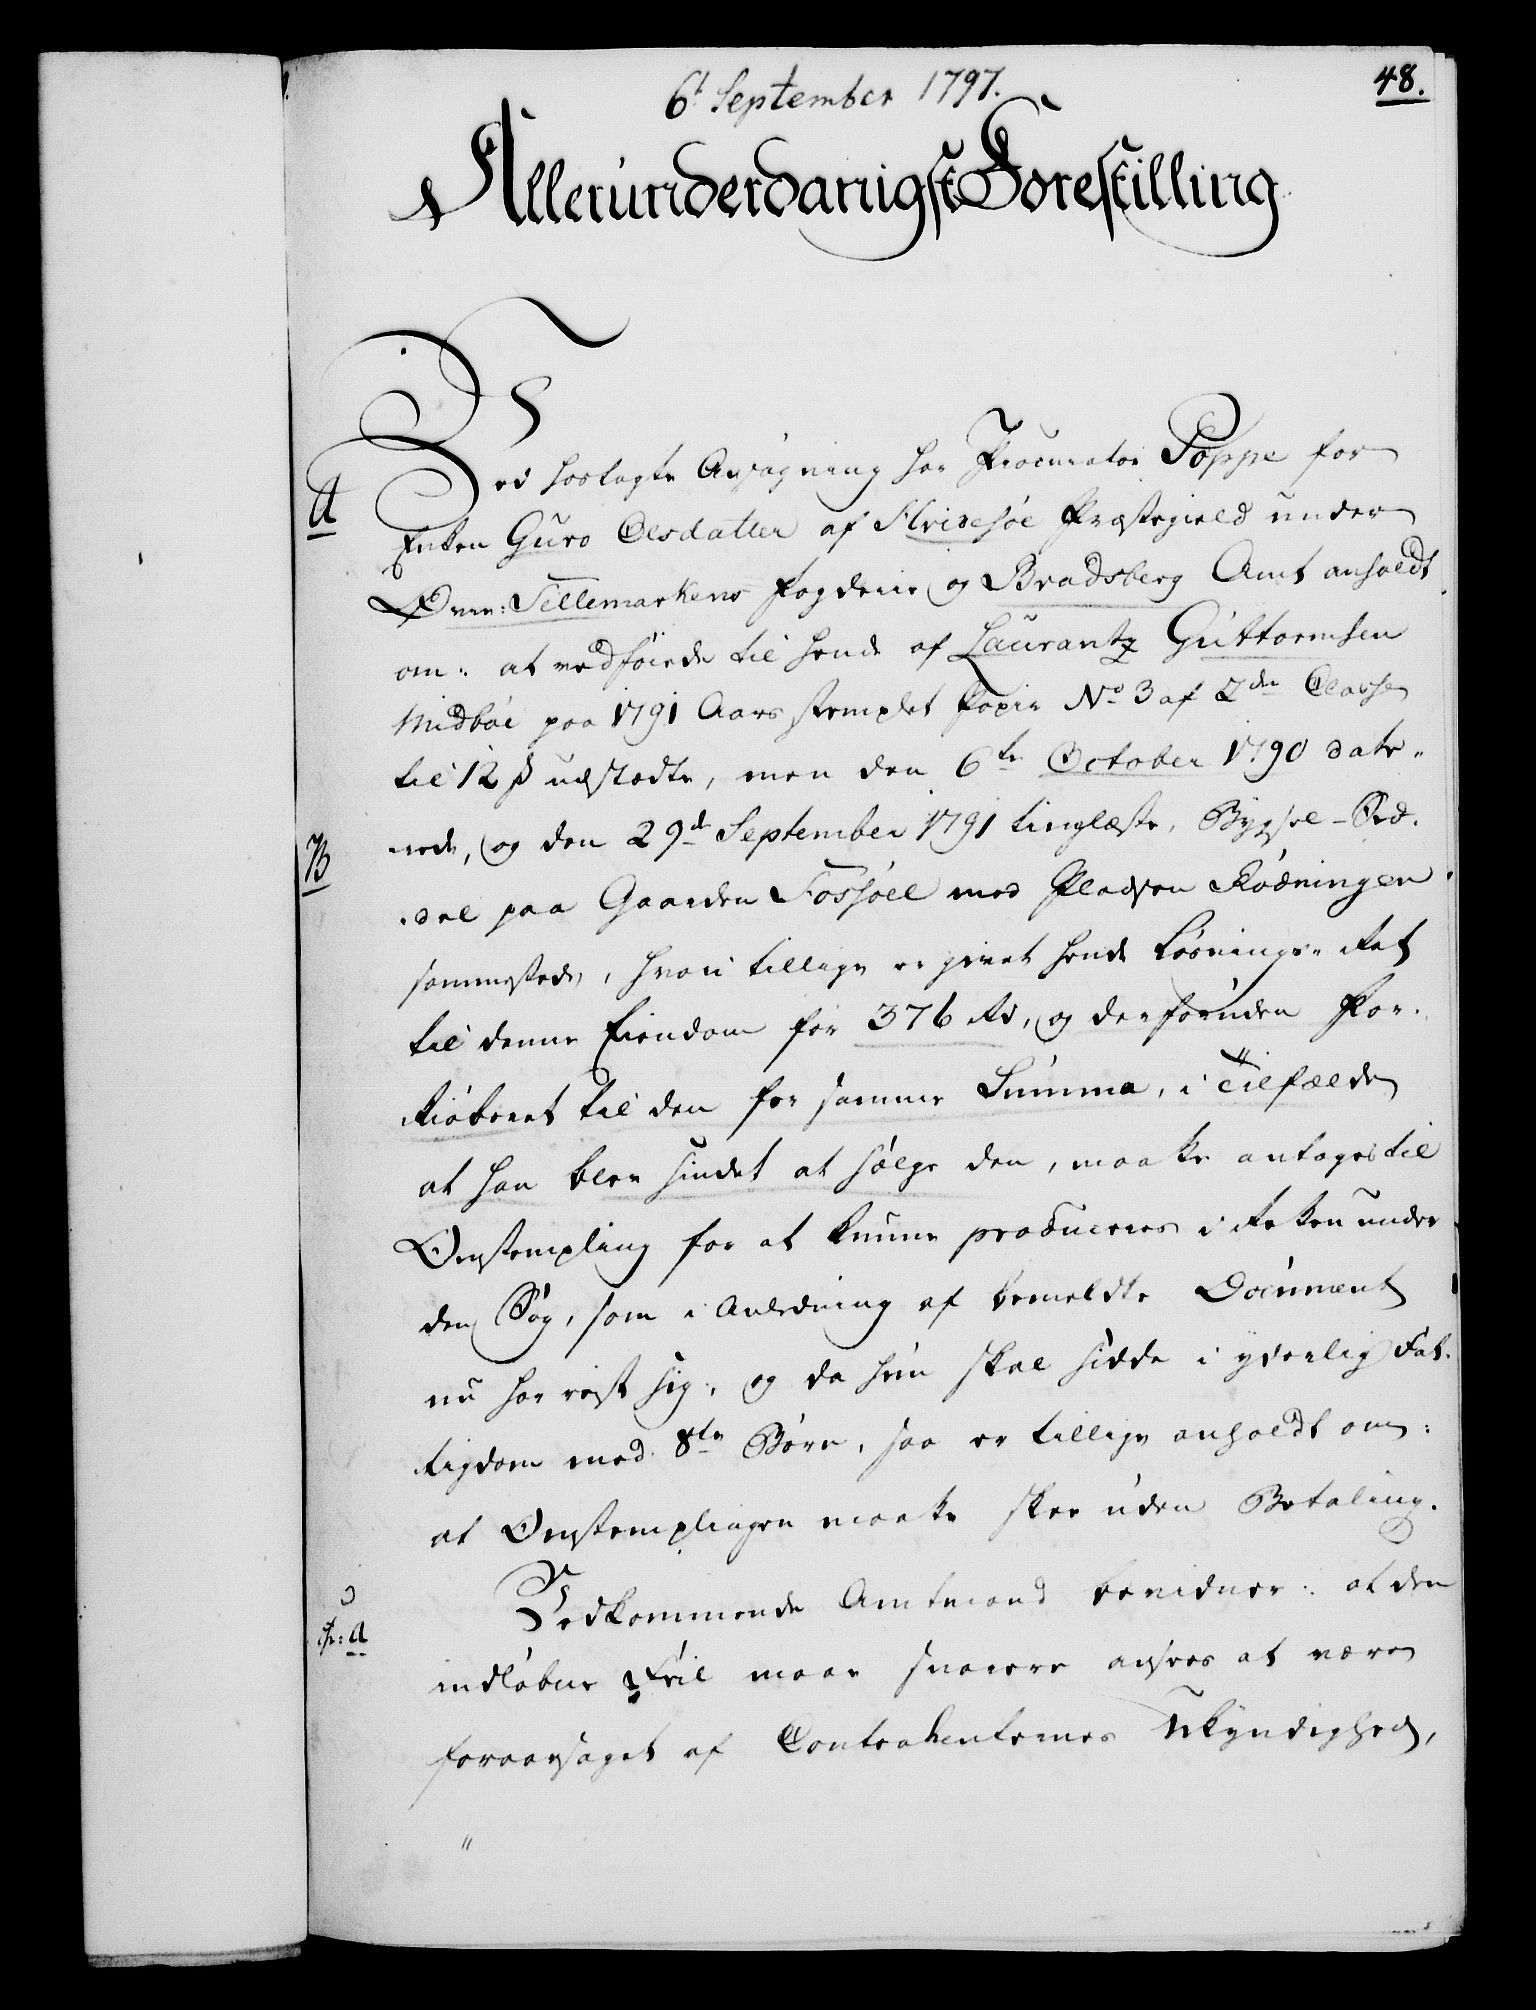 6t September 1797.
48.
Allerunderdanigst Forestilling
A
Ved hoslagte Ansøgning har Procurator Poppe for
Enken Guro Olsdatter af Hvidesøe Præstegield under
Over: Tellemarkens Fogderie og Bradsberg Amt anholdt
om: at vedføiede til hende af Laurantz Guttormsen
Midbøe paa 1791 Aars stemplet Papir No 3 af 2den Classe
til 12 ß udstædte, men den 6te October 1790 date-
B
rede, og den 29d September 1791 tinglæste, Bygsel-Sed-
del paa Gaarden Fossøel med Pladsen Rødningen
sammesteds, hvori tillige er givet hende Løsnings-Ret
til denne Eiendom for 376 Rd, og desforuden For-
kiøbsret til den for samme Summa, i Tilfælde
at han blev sindet at sælge den, maatte antages til
Omstempling for at kunne produceres i Retten under
den Sag, som i Anledning af bemeldte Document
nu har reist sig, og da hun skal sidde i yderlig Fat-
tigdom med 8te Børn, saa er tillige anholdt om:
at Omstemplingen maatte skee uden Betaling.
Vedkommende Amtmand bevidner: at den
cfr: A
indløbne Feil maae snarere ansees at være
foraarsaget af Contrahenternes Ukyndighed,